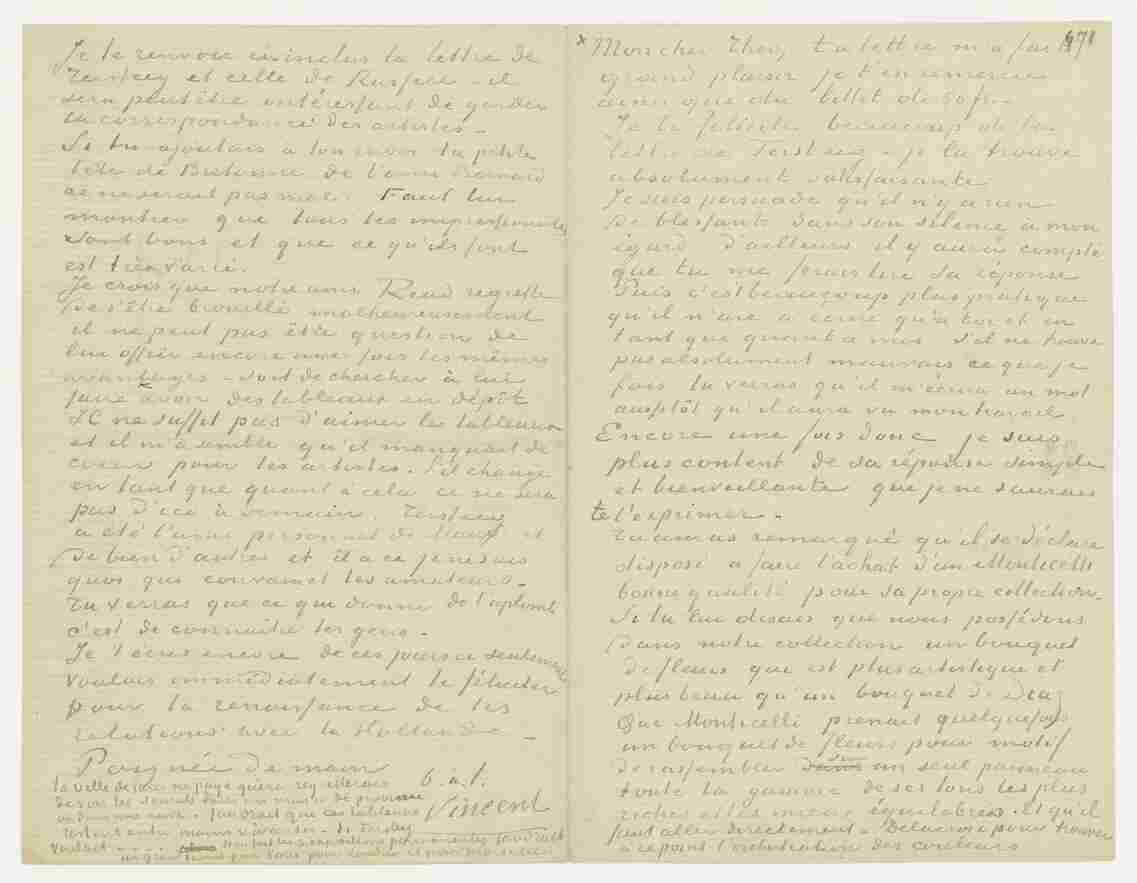 Je te renvoie ci inclus la lettre de
Tersteeg et celle de Russell – il
sera peut être intéressant de garder
la correspondance des artistes –
Si tu ajoutais à ton envoi la petite
tête de Bretonne de l'ami Bernard
ce ne serait pas mal. Faut lui
montrer que tous les impressionistes
sont bons et que ce qu'ils font
est très varié.
Je crois que notre ami Reid regrette
de s'être brouillé malheureusement
il ne peut pas être question de
lui offrir encore une fois les mêmes
avantages – soit de chercher à lui
faire avoir des tableaux en dépôt
Il ne suffit pas d'aimer les tableaux
et il m'a semblé qu'il manquait de
coeur pour les artistes. S'il change
en tant que quant à cela ce ne sera
pas d'ici à demain. Tersteeg
a été l'ami personnel de Mauve et
de bien d'autres et il a ce je ne sais
quoi qui convainct les amateurs –
Tu verras que ce qui donne de l'aplomb
c'est de connaitre les gens –
Je t'écris encore de ces jours ci seulement
voulais immédiatement te féliciter
pour la renaissance de tes
relations avec la Hollande –
Poignée de main
b. à t.
Vincent
× Mon cher Theo, ta lettre m'a fait 471
grand plaisir je t'en remercie
ainsi que du billet de 50 fr. –
Je te félicite beaucoup de la
lettre de Tersteeg – je la trouve
absolument satisfaisante
Je suis persuadé qu'il n'y a rien
de blessant dans son silence à mon
égard d'ailleurs il y aura compté
que tu me ferais lire sa réponse
Puis c'est beaucoup plus pratique
qu'il n'aie à écrire qu'à toi et en
tant que quant à moi s'il ne trouve
pas absolument mauvais ce que je
fais tu verras qu'il m'écrira un mot
aussitôt qu'il aura vu mon travail.
Encore une fois donc je suis
plus content de sa réponse simple
et bienveillante que je ne saurais
te l'exprimer –
Tu auras remarqué qu'il se déclare
disposé à faire l'achat d'un Monticelli
bonne qualité pour sa propre collection.
Si tu lui disais que nous possédons
dans notre collection un bouquet
de fleurs qui est plus artistique et
plus beau qu'un bouquet de Diaz
Que Monticelli prenait quelquefois
un bouquet de fleurs pour motif
de rassembler dans un seul panneau
toute la gamme de ses tons les plus
riches et les mieux équilibrés. Et qu'il
faut aller directement à Delacroix pour trouver
à ce point l'orchestration des couleurs